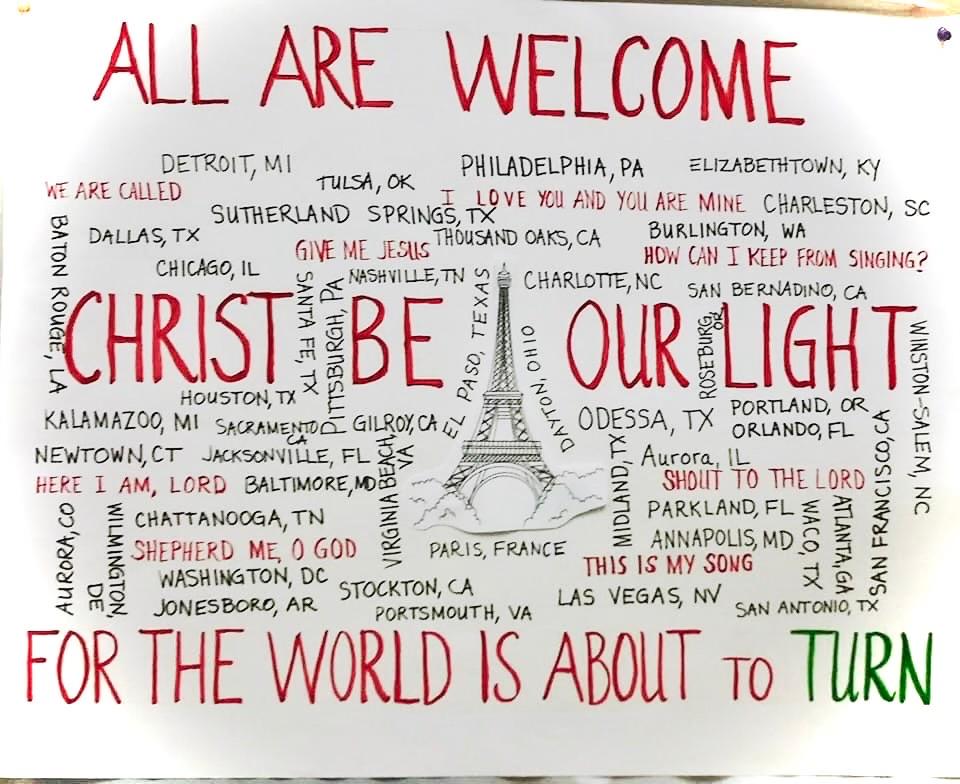 ALL ARE WELCOME
DETROIT, MI
PHILADELPHIA, PA
ELIZABETHTOWN, KY
WE ARE CALLED
TULSA, OK
I LOVE YOU AND YOU ARE MINE
CHARLESTON, SC
SUTHERLAND SPRINGS, TX
BATON ROUGE, LA
DALLAS, TX
GIVE ME JESUS
THOUSAND OAKS, CA
BURLINGTON, WA
HOW CAN I KEEP FROM SINGING?
CHICAGO, IL
SANTA FE, TX
PITTSBURGH, PA
NASHVILLE, TN
EL PASO, TEXAS
CHARLOTTE, NC
SAN BERNADINO, CA
CHRIST BE OUR LIGHT
DAYTON OHIO
ROSEBURG, OR
WINSTON-SALEM, NC
HOUSTON, TX
KALAMAZOO, MI
SACRAMENTO
CA
GILROY, CA
ODESSA, TX
PORTLAND, OR
ORLANDO, FL
NEWTOWN, CT
JACKSONVILLE, FL
VIRGINIA BEACH,
VA
MIDLAND, TX
Aurora, IL
SAN FRANCISCO, CA
HERE I AM, LORD
BALTIMORE, MD
SHOUT TO THE LORD
AURORA, CO
WILMINGTON,
DE
CHATTANOOGA, TN
PARKLAND, FL
WACO, TX
ATLANTA, GA
SHEPHERD ME, O GOD
PARIS, FRANCE
ANNAPOLIS, MD
THIS IS MY SONG
WASHINGTON, DC
STOCKTON, CA
JONESBORO, AR
PORTSMOUTH, VA
LAS VEGAS, NV
SAN ANTONIO, TX
FOR THE WORLD IS ABOUT TO TURN